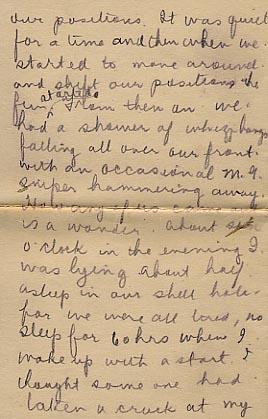 our positions. It was quiet
for a time and then when we
started to move around
and shift our positions the
fun started. From then on we
had a shower of whizz bangs
falling all over our front
with an occasional M.G.
sniper hammering away.
How any of us came out
is a wonder. About six
o'clock in the evening I
was lying about half
asleep in our shell hole
for we were all tired, no
sleep for 60 hrs when I
woke up with a start. I
thought some one had
taken a crack at my